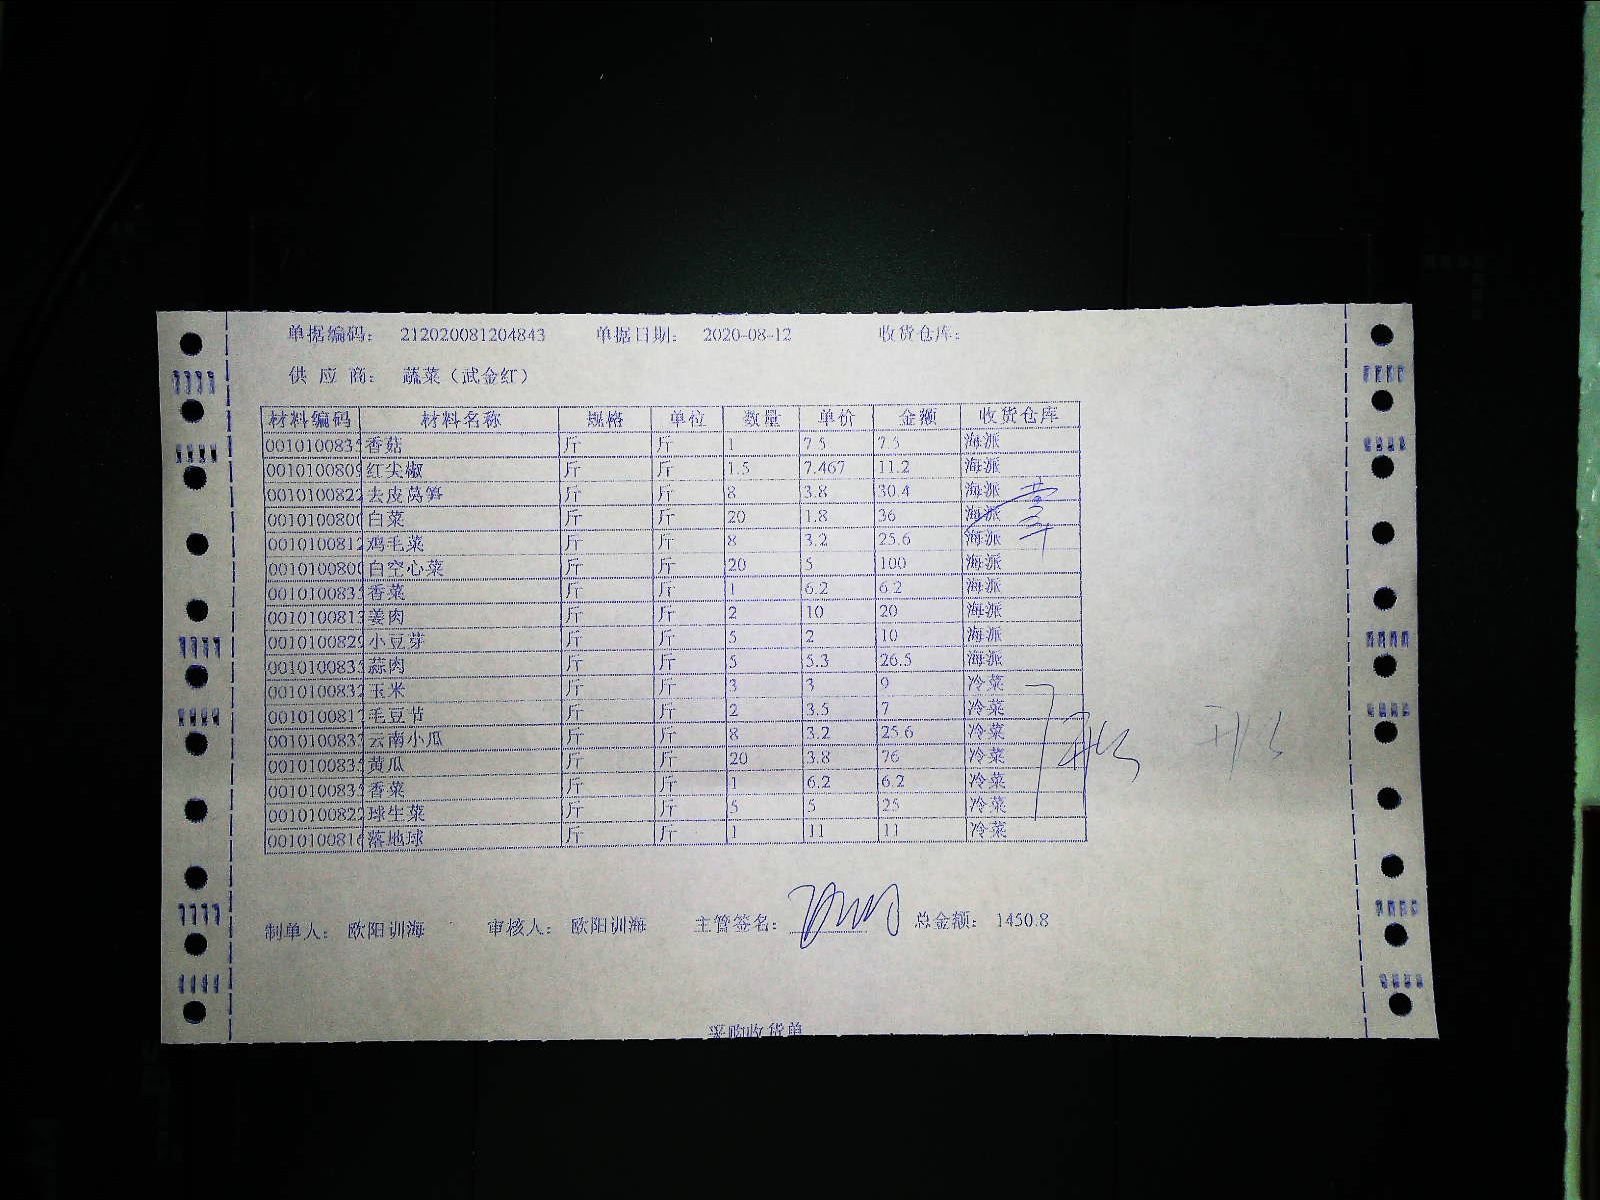 单据编码： 212020081204843 单据日期： 2020-08-12 收货仓库：
供 应 商： 蔬菜（武金红）
材料编码 材料名称 规格 单位 数量 单价 金额 收货仓库
001010083 香菇 斤 斤 1 7.5 7.5 海派
001010080 红尖椒 斤 斤 1.5 7.467 11.2 海派
001010082 去皮莴笋 斤 斤 8 3.8 30.4 海派
001010080 白菜 斤 斤 20 1.8 36 海派
001010081 鸡毛菜 斤 斤 8 3.2 25.6 海派
001010080 白空心菜 斤 斤 20 5 100 海派
001010083 香菜 斤 斤 1 6.2 6.2 海派
001010081 姜肉 斤 斤 2 10 20 海派
001010082 小豆芽 斤 斤 5 2 10 海派
001010083 蒜肉 斤 斤 5 5.3 26.5 海派
001010083 玉米 斤 斤 3 3 9 冷菜
001010081 毛豆节 斤 斤 2 3.5 7 冷菜
001010083 云南小瓜 斤 斤 8 3.2 25.6 冷菜
001010083 黄瓜 斤 斤 20 3.8 76 冷菜
001010083 香菜 斤 斤 1 6.2 6.2 冷菜
001010082 球生菜 斤 斤 5 5 25 冷菜
001010081 落地球 斤 斤 1 11 11 冷菜
制单人： 欧阳训海 审核人： 欧阳训海 主管签名： 总金额： 1450.8
采购收货单